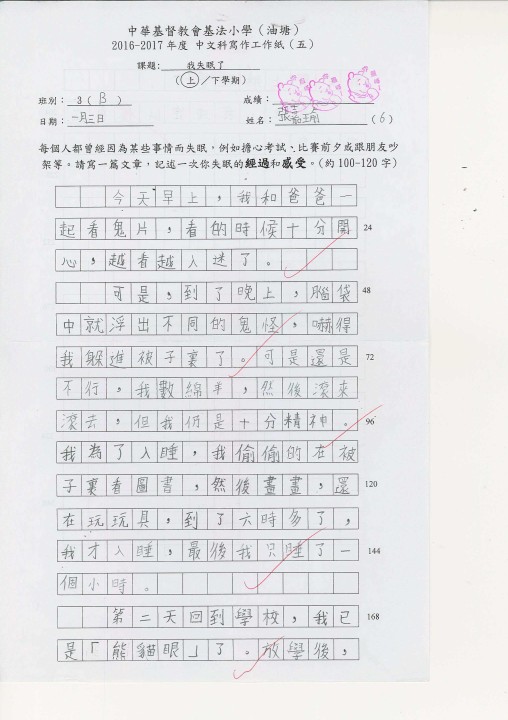 中華基督教會基法小學（油塘）
2016-2017年度 中文科寫作工作紙（五）
課題：我失眠了
（上／下學期）
班別：3（B） 成績：
日期：一月三日 姓名：張（6）
每個人都曾經因為某些事情而失眠，例如擔心考試、比賽前夕或跟朋友吵
架等。請寫一篇文章，記述一次你失眠的經過和感受。（約100-120字）
今天早上，我和爸爸一
起看鬼片，看的時候十分開 24
心，越看越入迷了。
可是，到了晚上，腦袋 48
中就浮出不同的鬼怪，嚇得
我躲進被子裏了。可是還是 72
不行，我數綿羊，然後滾來
滾去，但我仍是十分精神。 96
我為了入睡，我偷偷的在被
子裏看圖書，然後畫畫，還 120
在玩玩具，到了六時多了，
我才入睡，最後我只睡了一 144
個小時。
第二天回到學校，我已 168
是「熊貓眼」了。放學後，